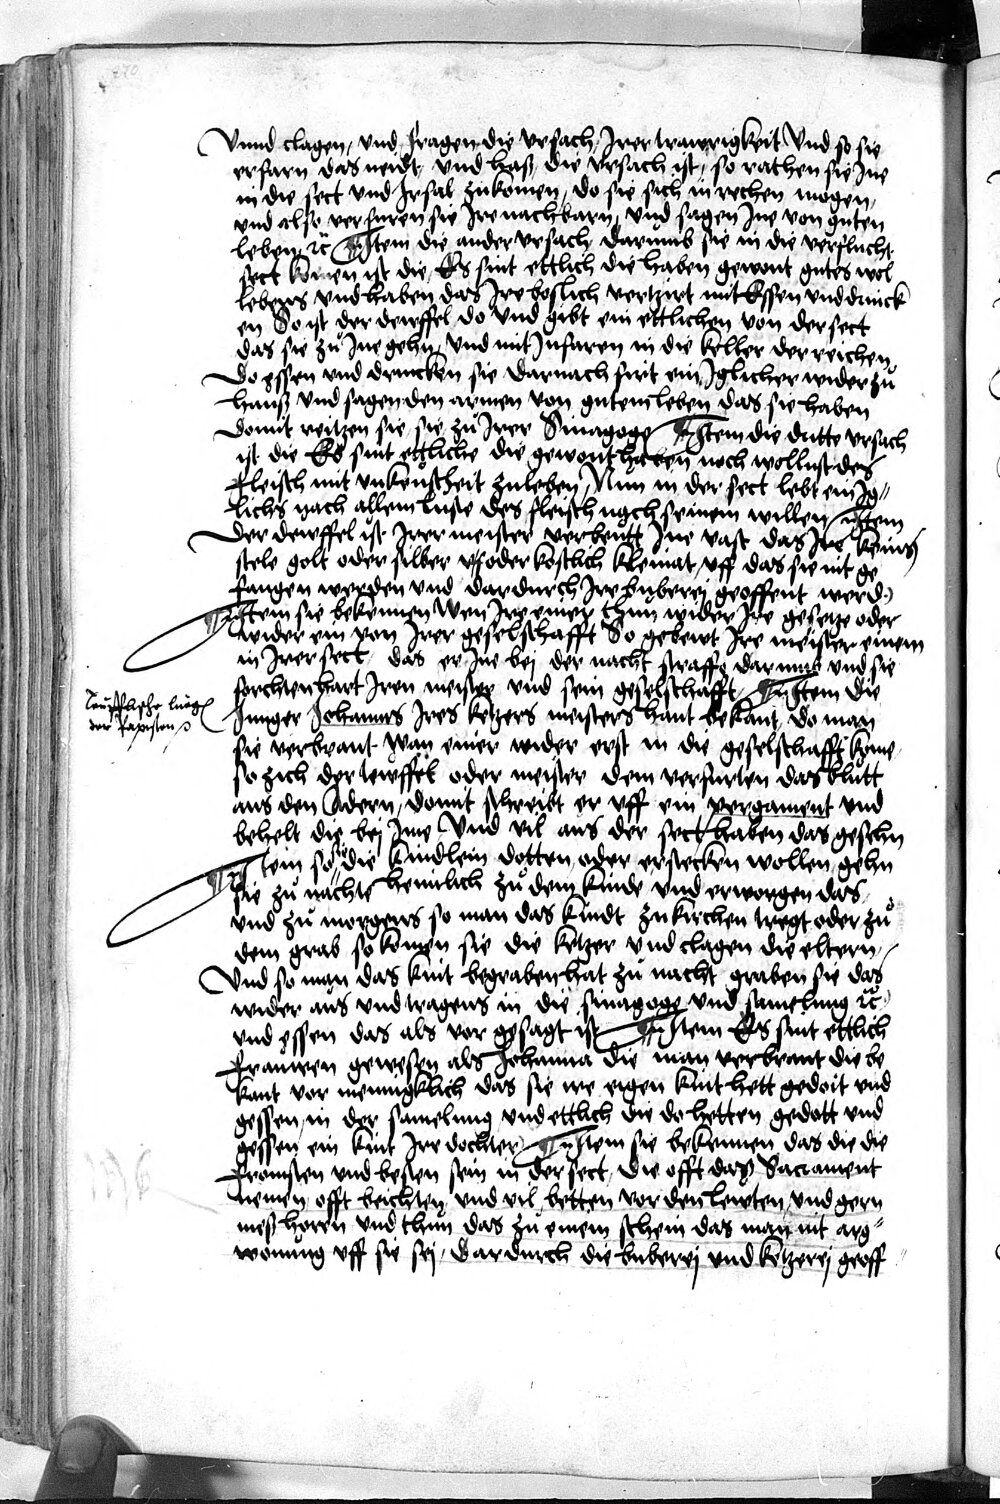 270
Vnnd clagen, vnd fragen die vrsach Irer trawrigkeit Vnd so sie
erfarn das neidt, vnd haß, die vrsach ist, so rathen sie Ine
in die sect vnd Irsal zukomen, do sie sich in rechen mogen,
vnd also verfuren sie Ire nachbarn, vnd sagen Ine von guten
leben, ꝛc Item die ander vrsach, darumb sie in die verflucht
sect komen ist die, Es sint ettlich die haben gewont gutes wol
lebens vnd haben das Ire boslich vertzirt mit Essen vnd drinck
en So ist der dewffel do vnd gibt ein ettlichen von der sect
das sie zu Ine gehn, vnd mit In faren in die keller der reichen
Do essen vnd drincken sie darnach furt ein Iglicher wider zu
hauß vnd sagen den armen von gutem leben das sie haben
domit reitzen sie sie zu Irer Sinagoge Item die dritte vrsach
ist die Es sint ettliche die gewont haben noch wollust des
fleisch mit vnkeuscheit zuleben, Nun in der sect lebt ein Ig
lichs nach allem luste des fleisch nach seinem willen, Item
Der dewffel ist Irer meister verbeutt Ine vast das Ire keins
stele golt oder silber oder kostlich kleinat, vff das sie nit ge
fangen werden vnd dardurch Ire buberei geoffent werd
Item sie bekennen Wen Ire einer thun wider Ire gesetze oder
wider ein von Irer geselschafft So gebewt Ire meister einem
in Irer sect, das er Ine bei der nacht straffe darumb vnd sie
forchten hart Iren meister vnd sein geselschafft Item die
teufflische lueg
der Papisten
Iunger Iohannes Ires ketzers meisters hant bekant, do man
sie verbrant Wan einer wider erst in die geselschafft kome
so zich der tewffel oder meister dem verfurten das blutt
aus den Adern, domit schreibt er vff ein pergament vnd
behelt die bei Ime Vnd vil aus der sect haben das gesehn
Item so sie die kindlein dotten oder erstecken wollen, gehn
sie zu nachte heimlich zu dem kinde vnd erworgen das,
vnd zu morgens so man das kindt zu kirchen tregt oder zu
dem grab so komen sie die ketzer vnd clagen die eltern,
Vnd so man das kint begraben hat zu nacht graben sie das
wider aus vnd tragens in die sinagoge vnd samelung ꝛc
vnd essen das als vor gesagt ist Item Es sint ettlich
frauwen gewesen als Iohanna die man verbrant die be
kant vor menigklich das sie ire eigen kint hett gedott vnd
gessen, in der samelung vnd ettlich die do hetten gedott vnd
gessen ein kint Ire dochter, Item sie bekennen das die die
fromsten vnd besten sein in der sect, die offt daß Sacrament
nemen offt beichten, vnd vil betten vor den lewten, vnd gern
meß horen vnd thun das zu einem schein das man nit arg
wonung vff sie sej, Dardurch die buberej vnd ketzerej geoff